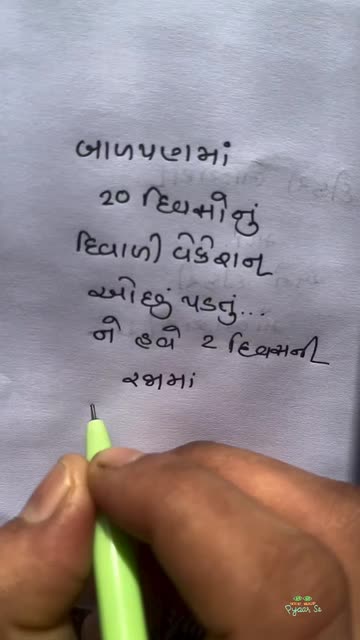 બાળપણમાં
20 દિવસોનું
દિવાળી વેકેશન
ઓછું પડતું...
ને હવે 2 દિવસની
રજામાં
Pyaar Se